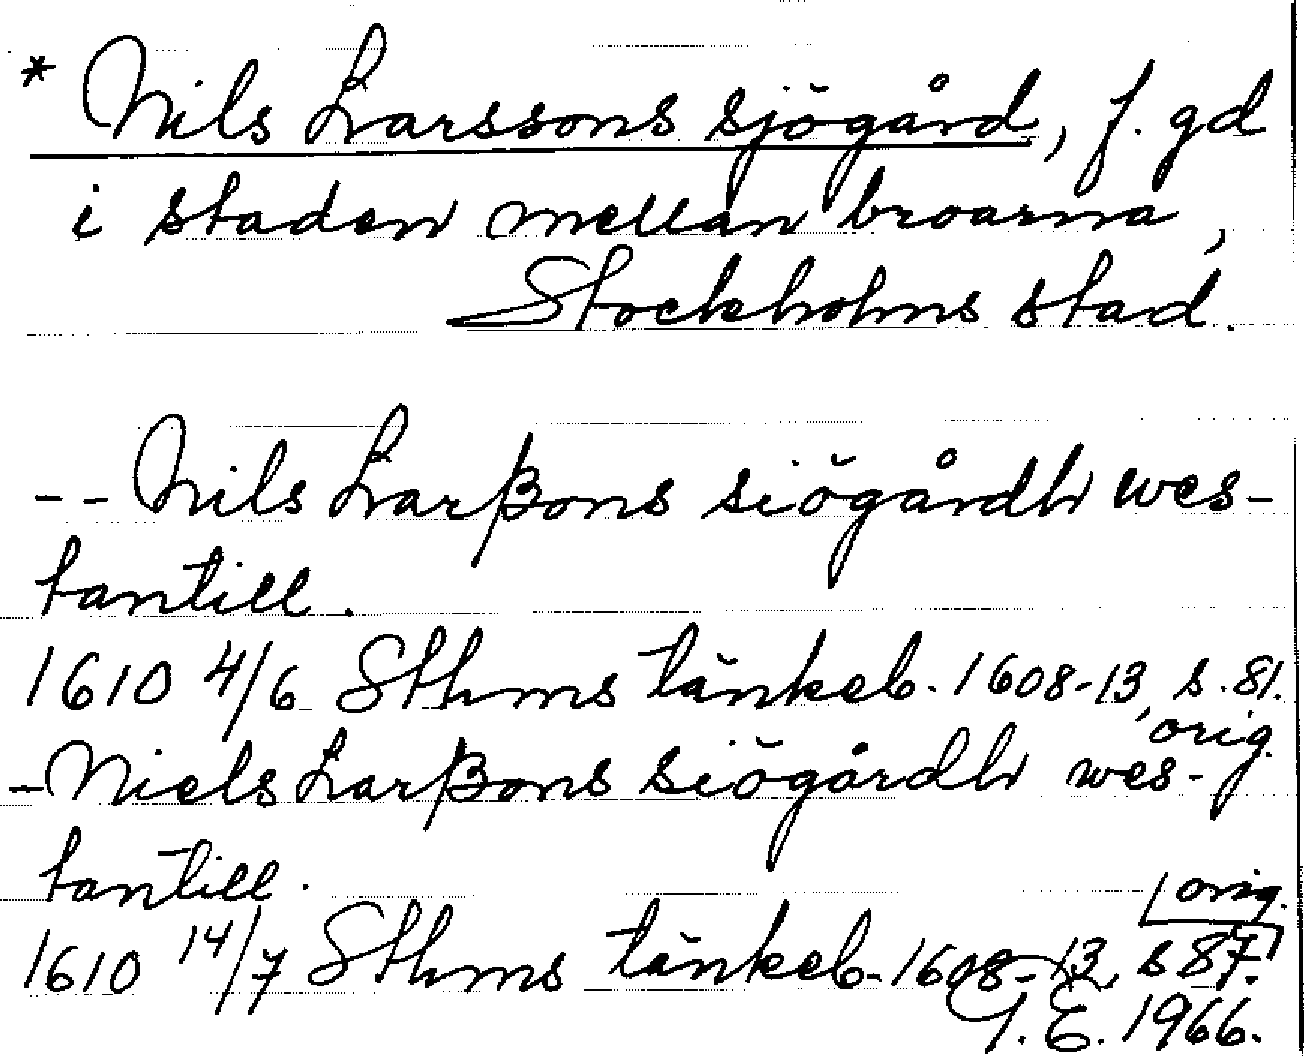 * Nils Larssons sjögård, f. gd
i staden mellan broarna,
Stockholms stad.
-- Nils Larßons siögårdh wes-
tantill.
1610 4/6 Sthms tänkeb. 1608-13, s. 81.
orig.
- Niels Larßons siögårdh wes-
tantill.
orig.
1610 14/7 Sthms tänkeb. 1608-13, s 87.
G. E. 1966.